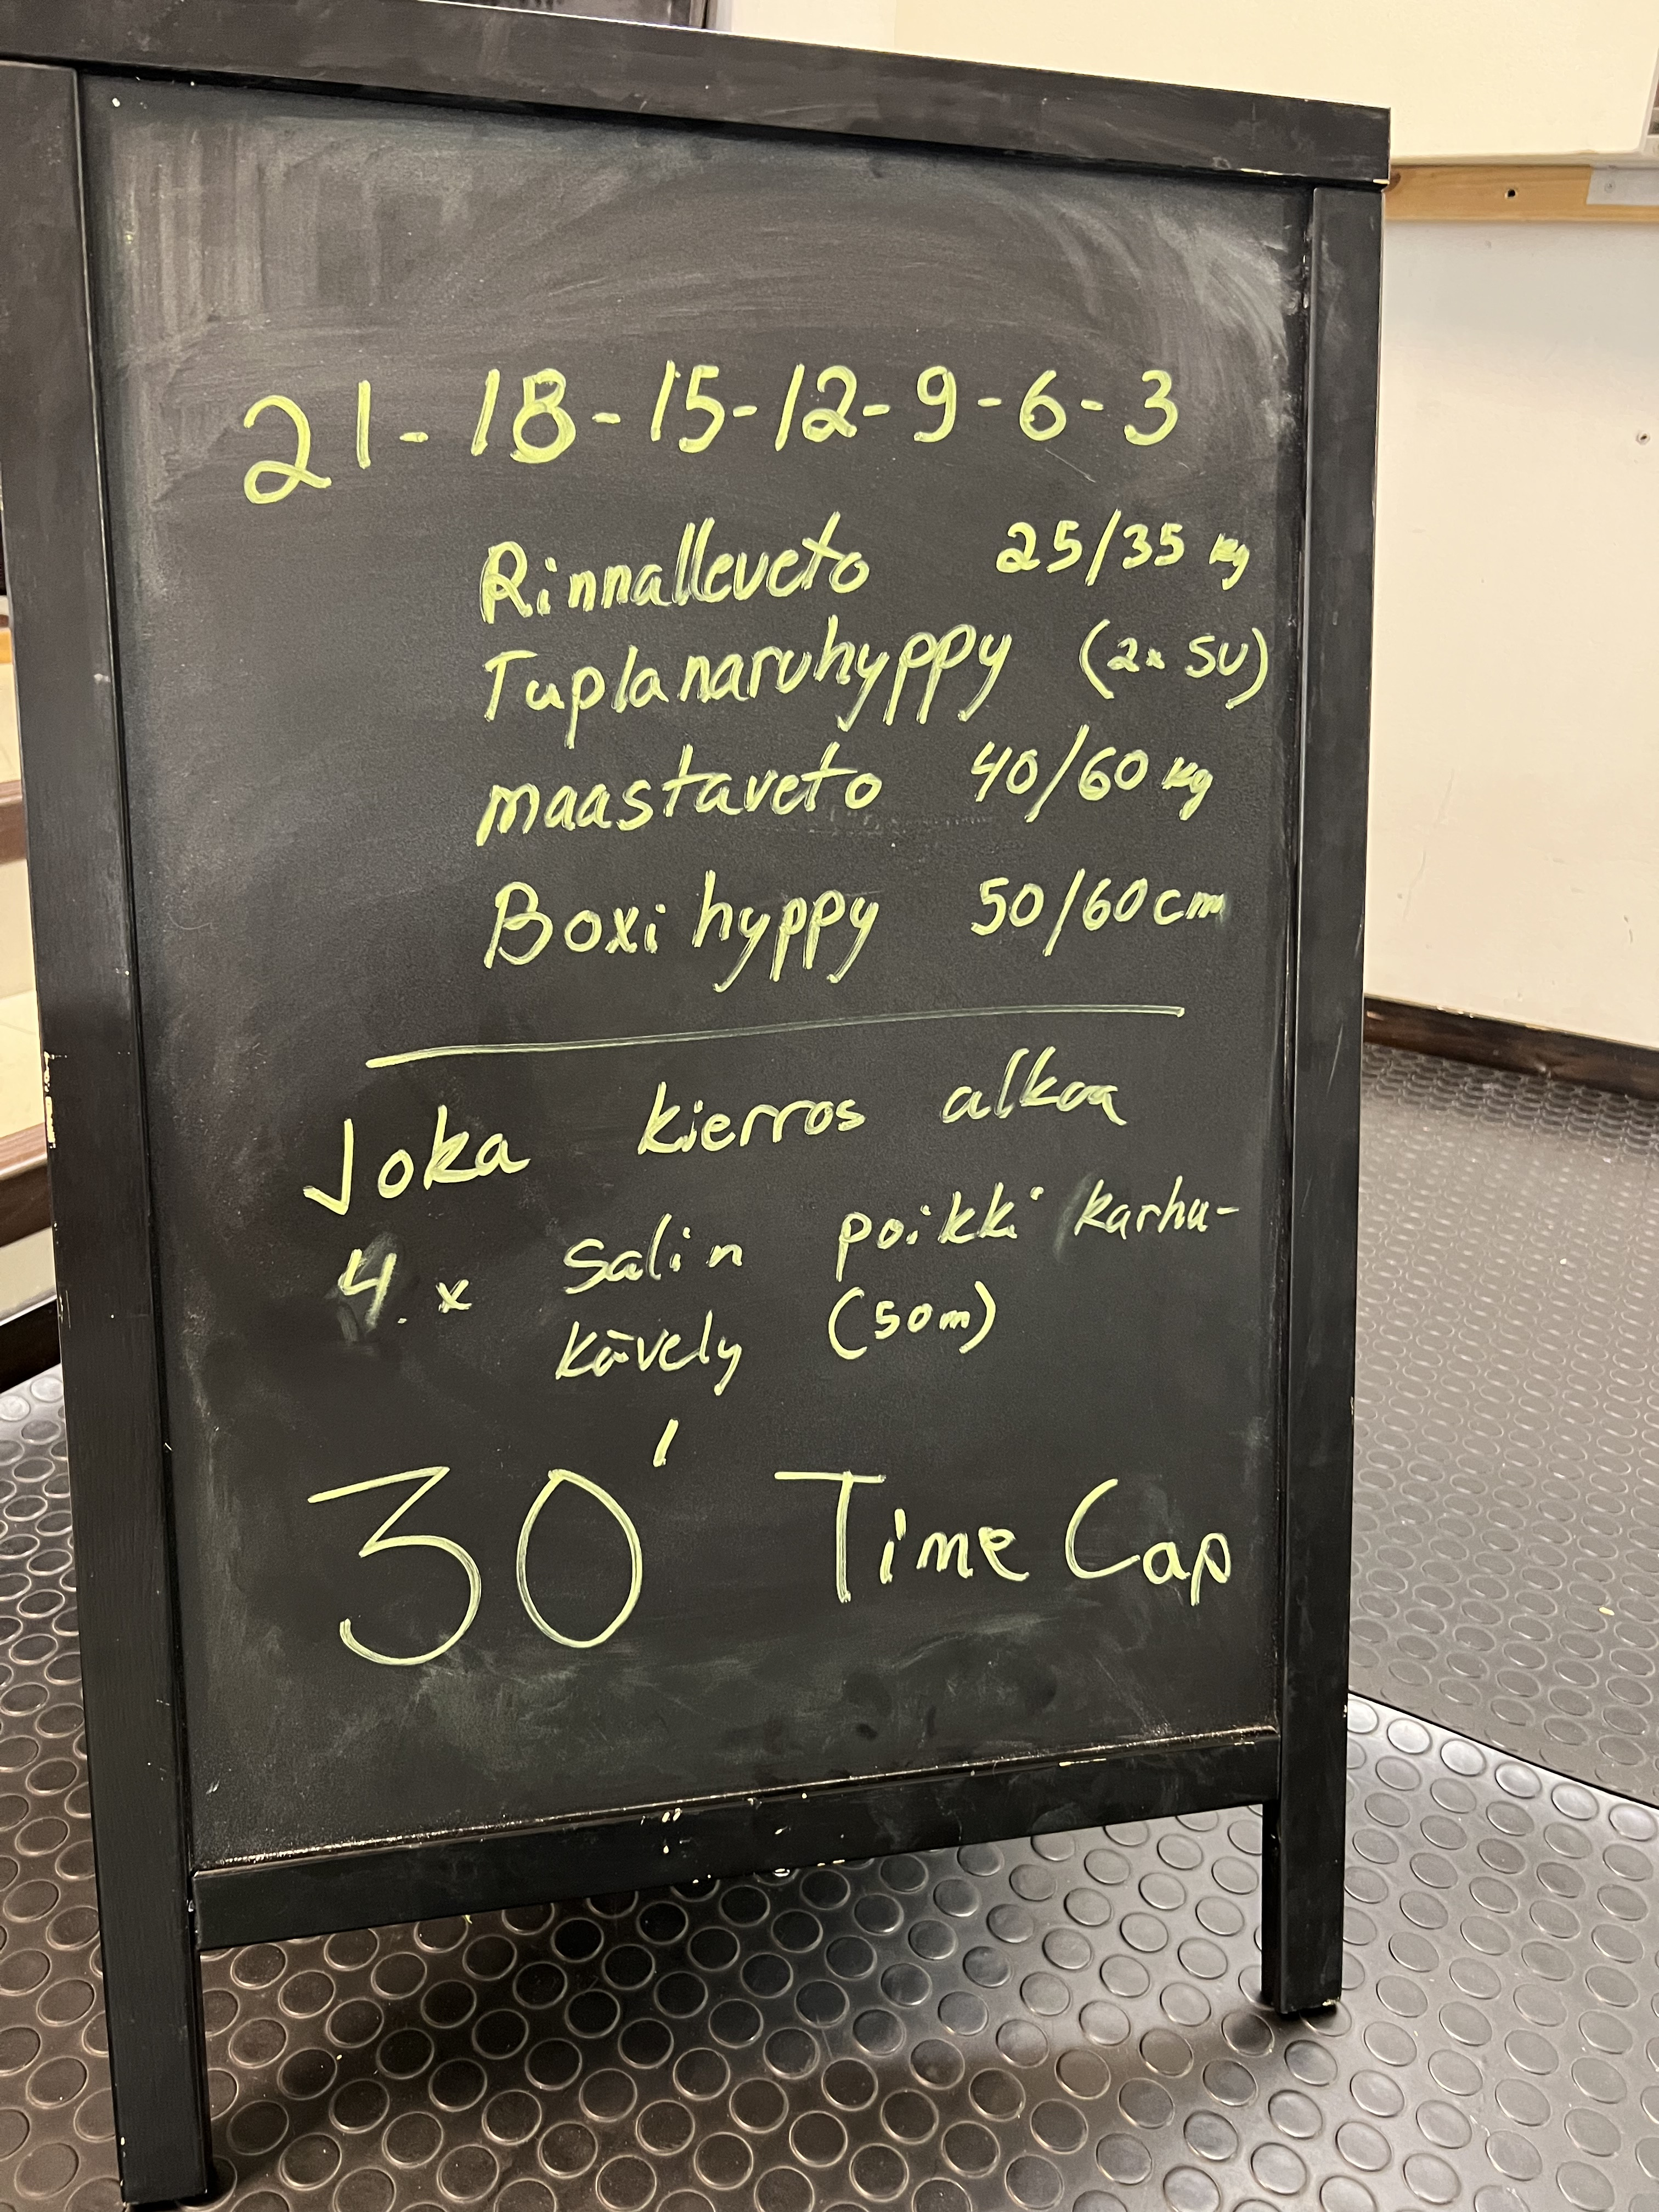 21-18-15-12-9-6-3
Rinnalleveto 25/35 kg
Tuplanaruhyppy (2x SU)
maastaveto 40/60 kg
Boxihyppy 50/60cm
Joka kierros alkaa
4.x Salin poikki karhu-
kävely (50m)
30' Time Cap